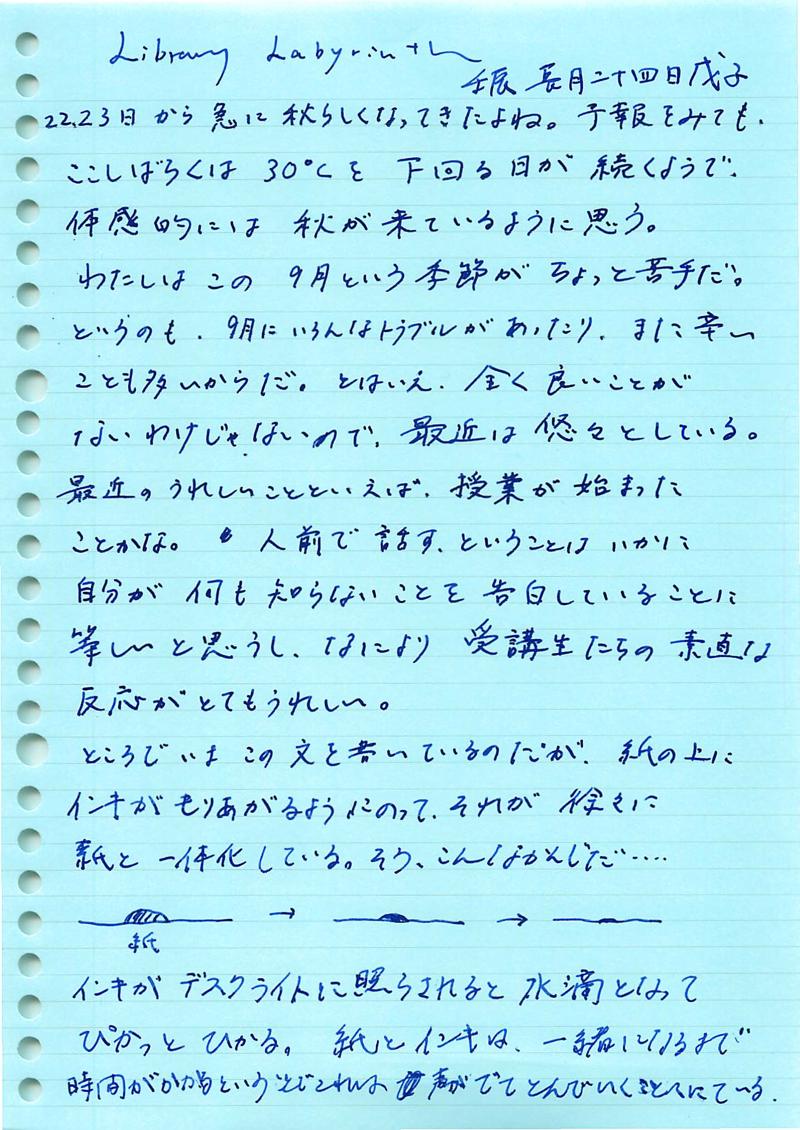 Library Labyrinth
壬辰 長月二十四日戊子
22,23日から急に秋らしくなってきたよね。予報をみても、
ここしばらくは 30℃を下回る日が続くようで、
体感的には秋が来ているように思う。
わたしはこの9月という季節がちょっと苦手だ。
というのも、9月にいろんなトラブルがあったり、また辛い
ことも多いからだ。とはいえ、全く良いことが
ないわけじゃないので、最近は悠々としている。
最近のうれしいことといえば、授業が始まった
ことかな。人前で話す、ということはいかに
自分が何も知らないことを告白していることに
等しいと思うし、なにより受講生たちの素直な
反応がとてもうれしい。
ところでいまこの文を書いているのだが、紙の上に
インキがもりあがるようにのって、それが徐々に
紙と一体化している。そう、こんなかんじだ‥‥
→ →
紙
インキがデスクライトに照らされると水滴となって
ぴかっとひかる。紙とインキは、一緒になるまで
時間がかかるということでこれは声がでてとんでいくことににている。